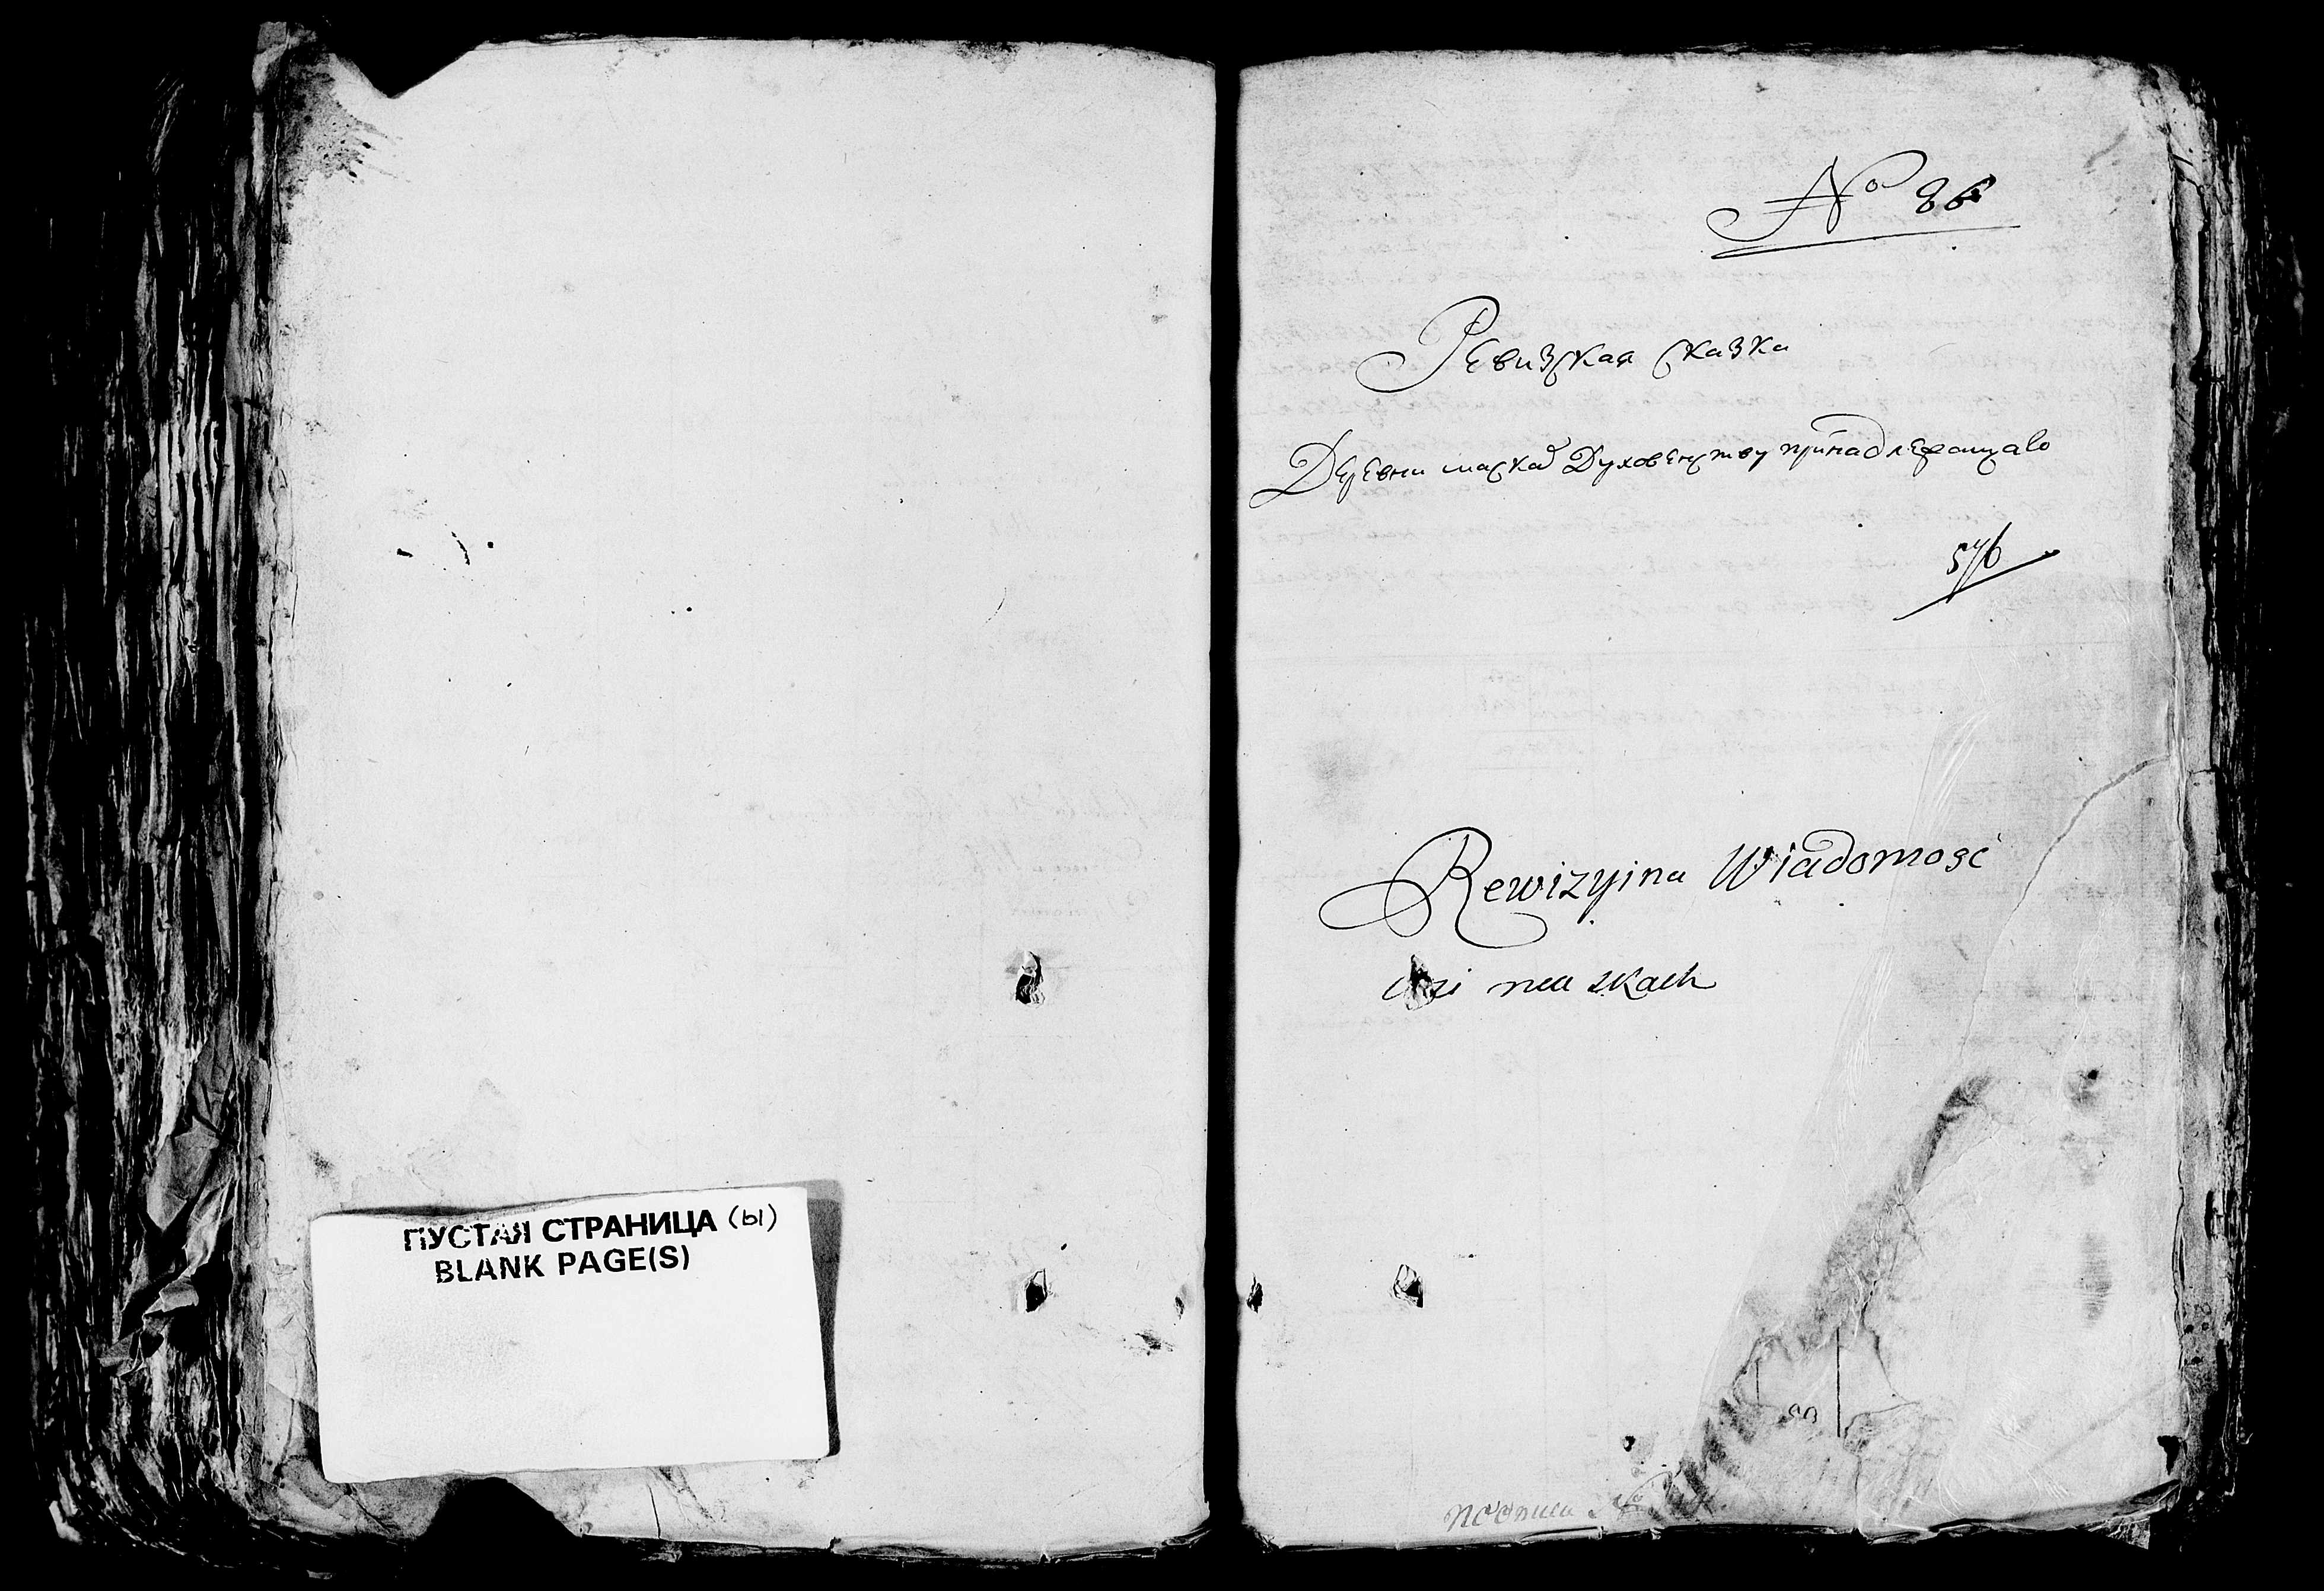 ПУСТАЯ СТРАНИЦА (ы)
BLANK PAGE(S)
№ 86
Ревизская сказка
Деревни маскад Духовенству принадлежащаво
Rewizyina Wiadomość